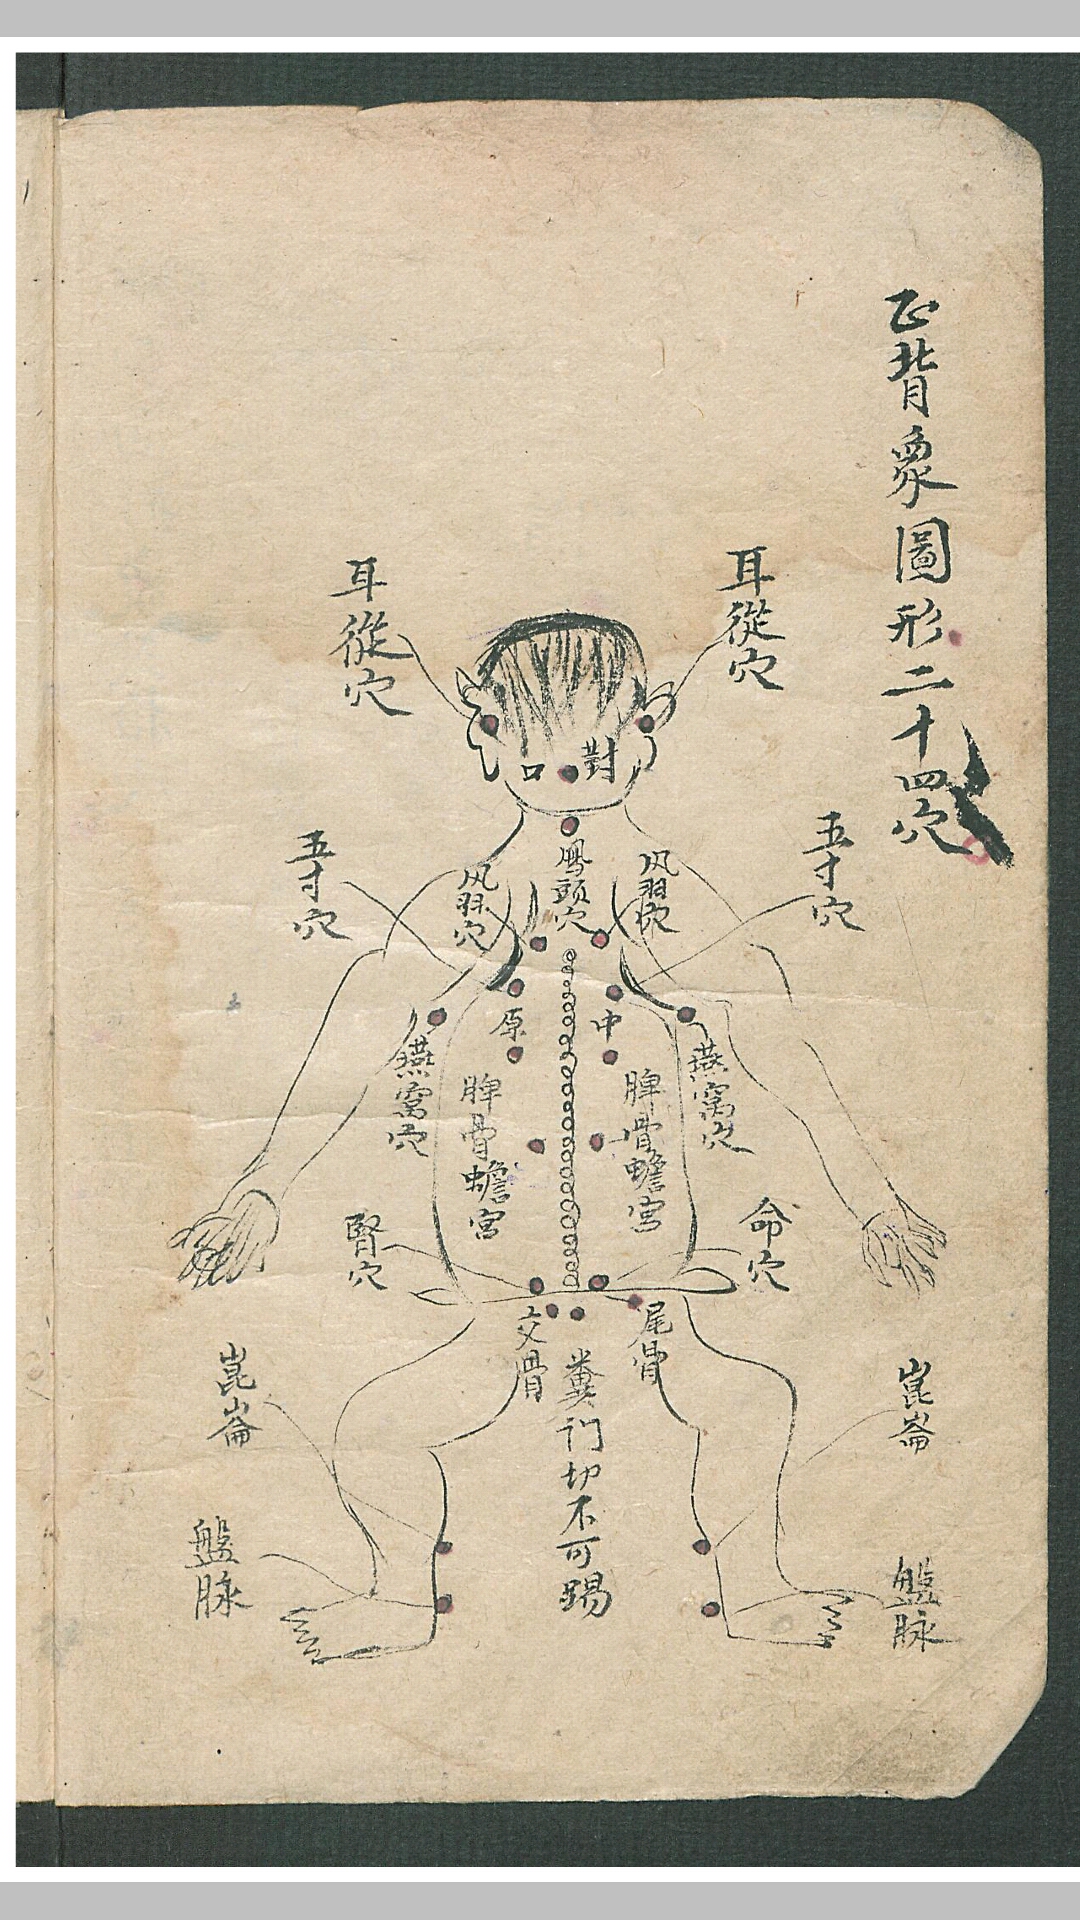 正背象圖形二十四穴
耳從穴
耳從穴
對口
五寸穴
鳳頭穴
风羽穴
风羽穴
五寸穴
中原
燕窩穴
脾骨蟾宮
脾骨蟾宮
燕窩穴
命穴
腎穴
尾骨
交骨
糞门切不可踢
崑崙
崑崙
盤脉
盤脉